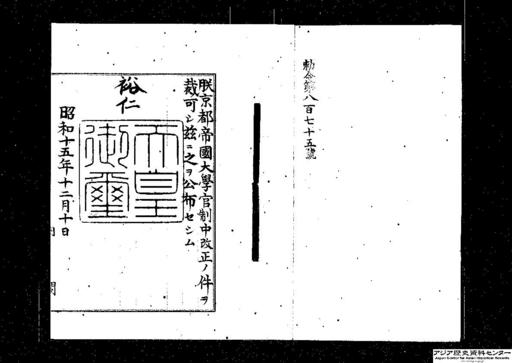 勅令第八百七十五號
朕京都帝國大學官制中改正ノ件ヲ
裁可シ茲ニ之ヲ公布セシム
裕仁
天皇
御璽
昭和十五年十二月十日
アジア歴史資料センター
Japan Center for Asian Historical Records